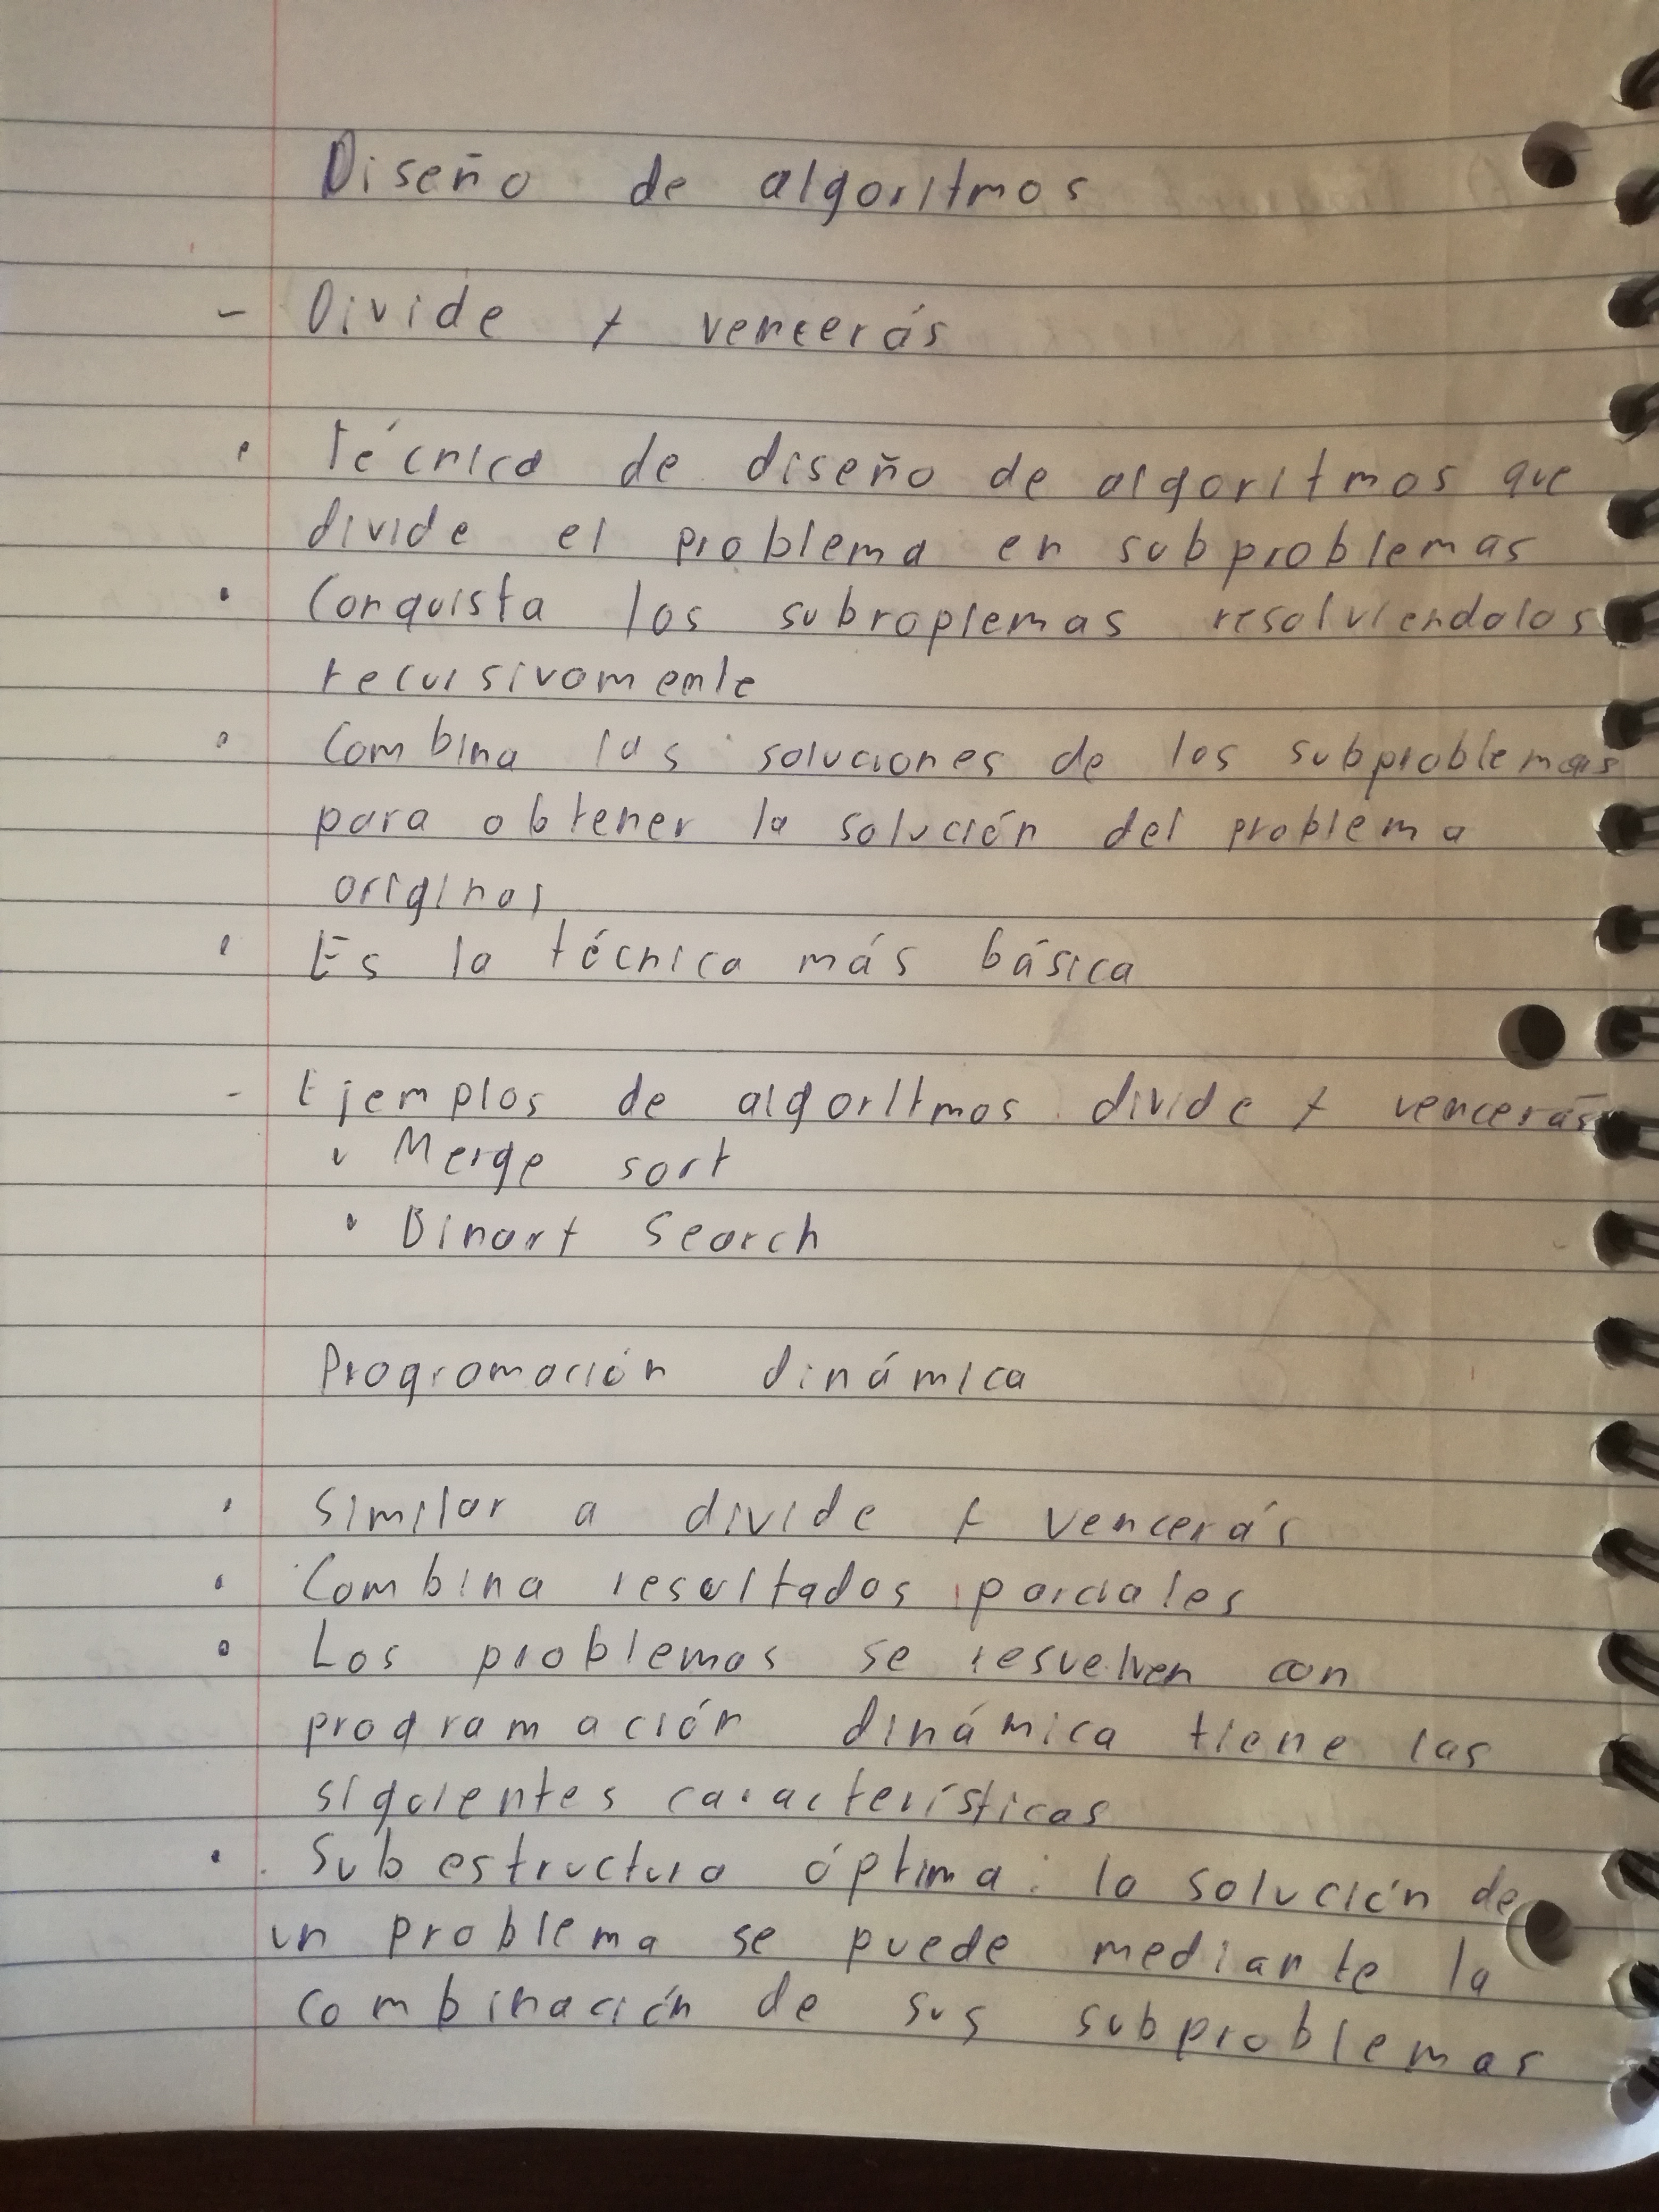 Diseño de algoritmos
- Divide y vencerás
• Técnica de diseño de algoritmos que
divide el problema en subproblemas
• Conquista los subroplemas resolviendolos
recursivomemte
• Combina las soluciones de los subproblemas
para obtener la solución del problema
original
• Es la técnica más básica
- Ejemplos de algoritmos divide y vencerás
• Merge sort
• Binary Search
Programación dinámica
• Similar a divide y vencerás
• Combina resultados parciales
• Los problemas se resuelven con
programación dinámica tiene las
siguientes características
• Subestructura óptima: la solución de
un problema se puede mediante la
combinación de sus subproblemas